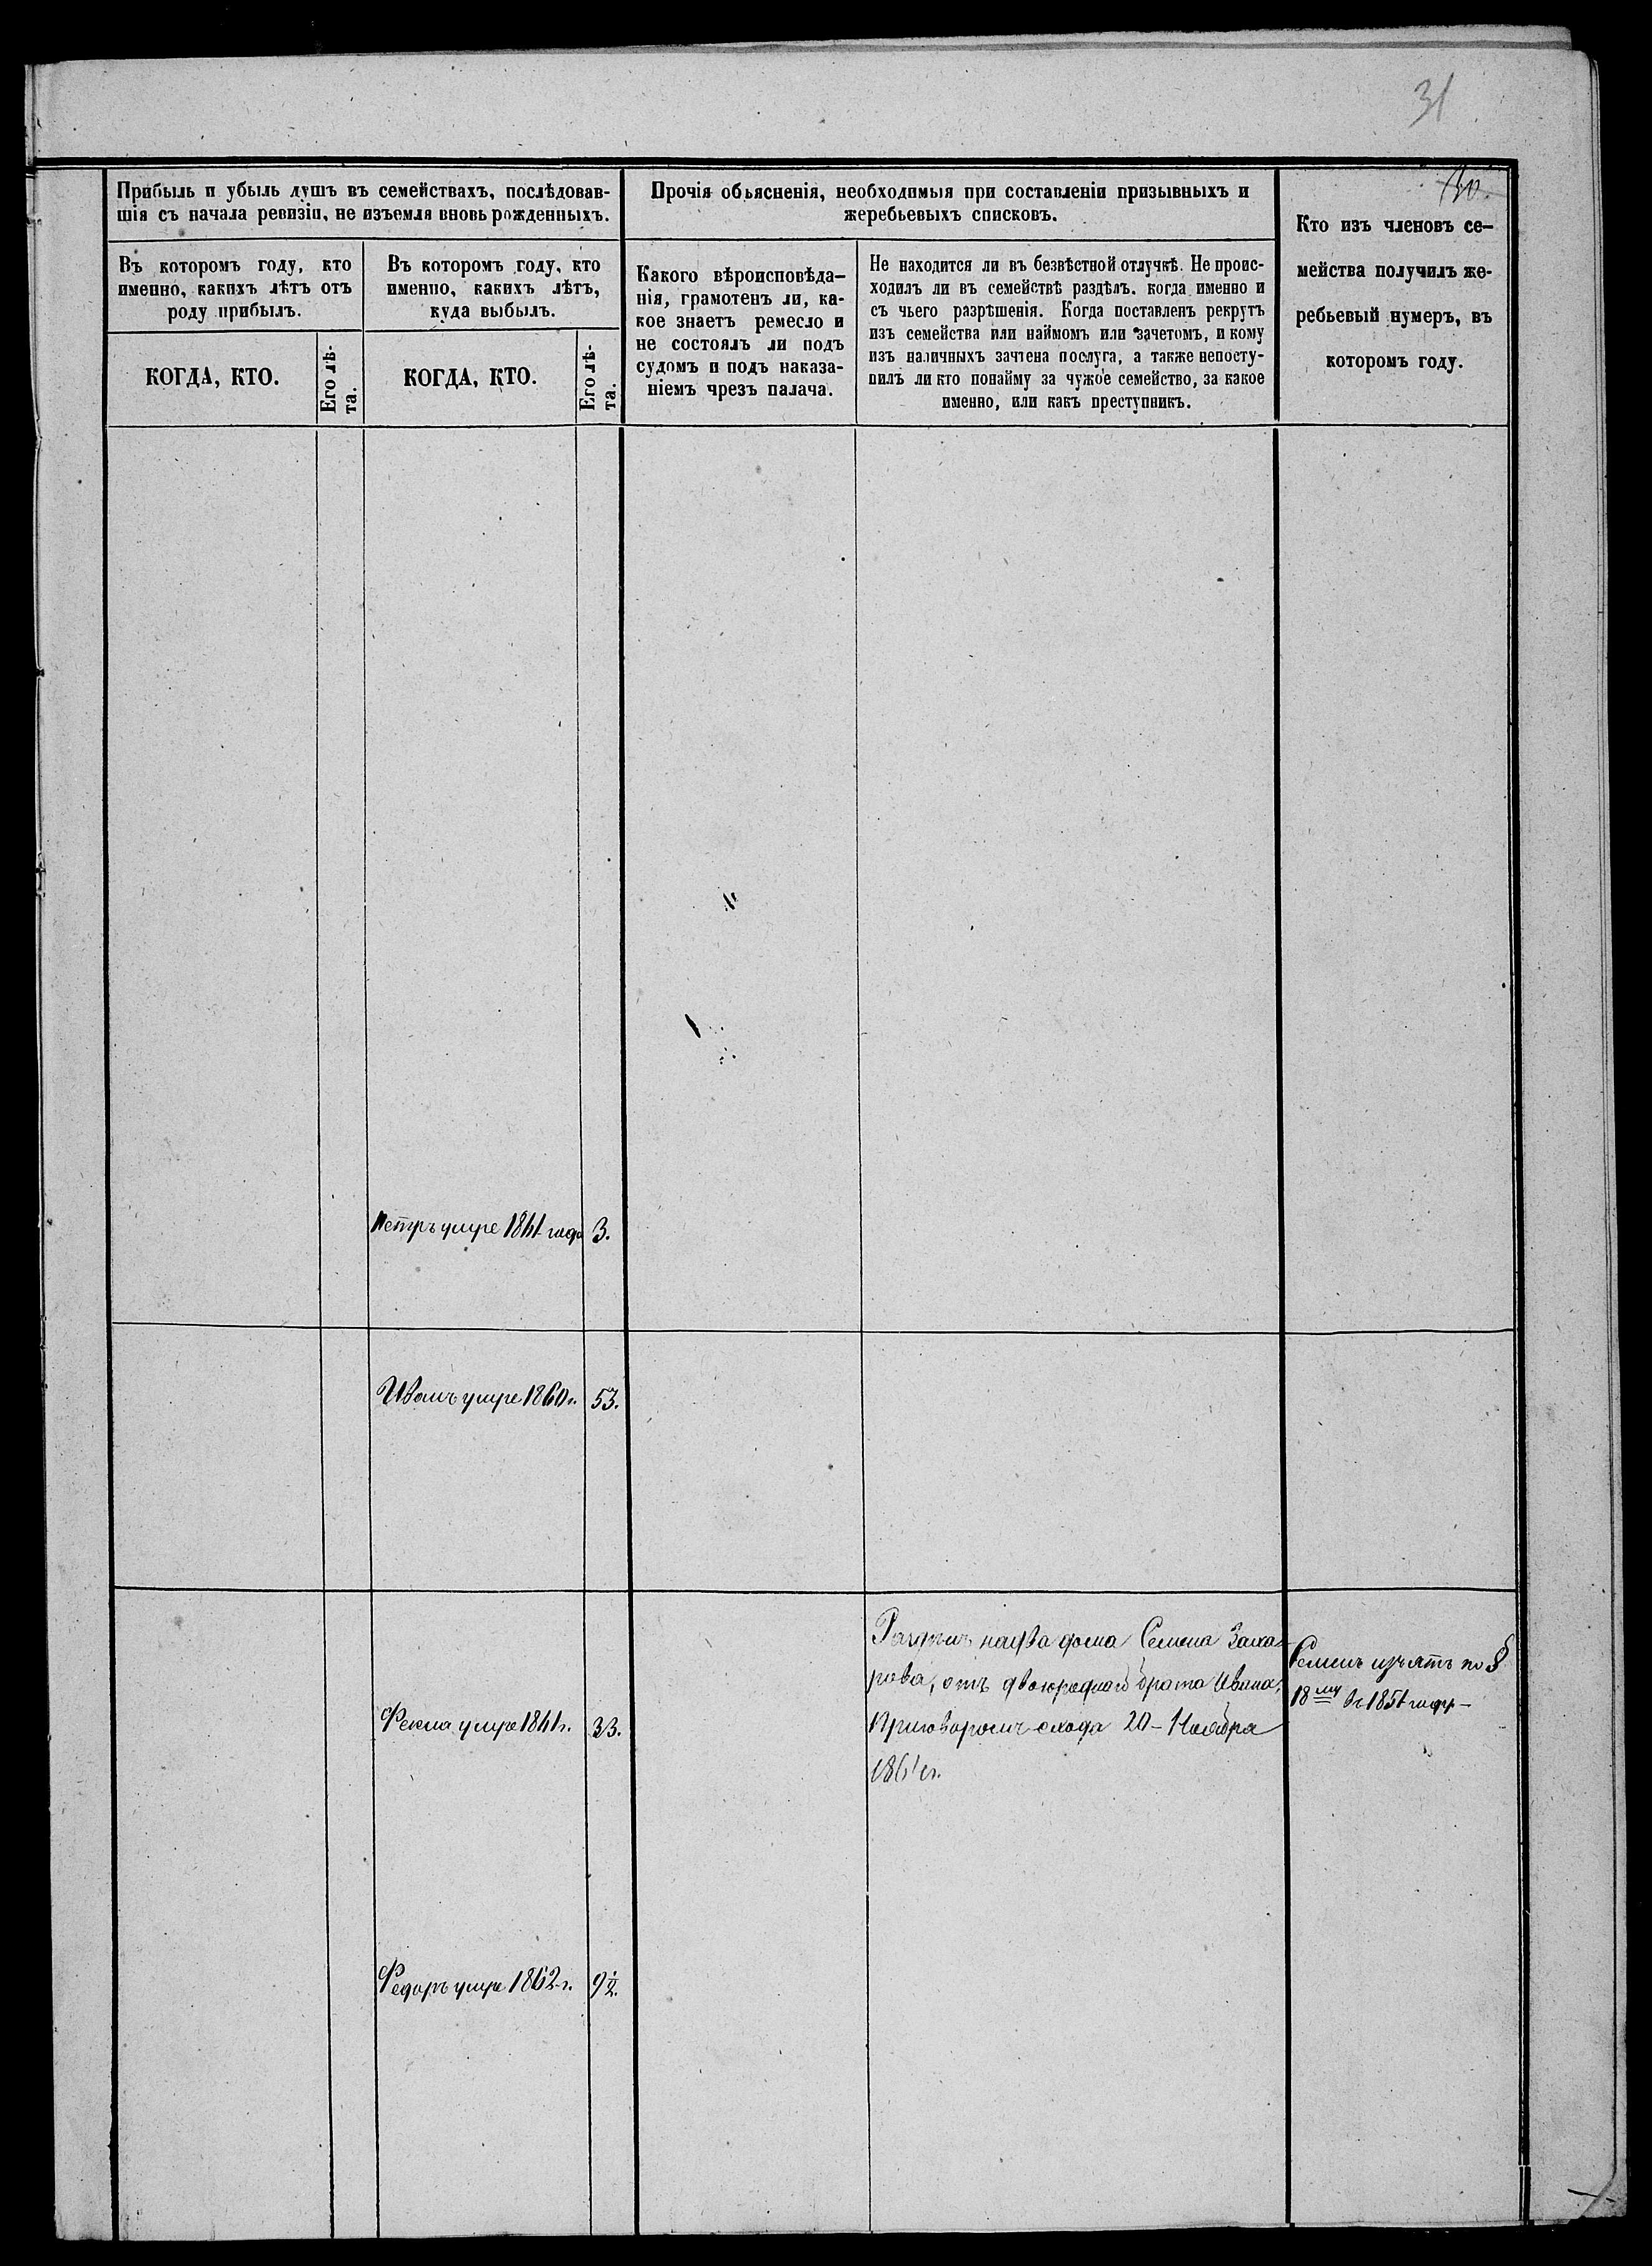 31
Прибыль и убыль душъ въ семействахъ, послѣдовав-
шія съ начала ревизіи, не изъемля вновь рожденныхъ.
Въ которомъ году, кто
именно, какихъ лѣтъ отъ
роду прибылъ.
КОГДА, КТО.
Его лѣ-
та.
Въ которомъ году, кто
именно, какихъ лѣтъ,
куда выбылъ.
КОГДА, КТО.
Его лѣ-
та.
Прочія объясненія, необходимыя при составленіи призывныхъ и
жеребьевыхъ списковъ.
Какого вѣроисповѣда-
нія, грамотенъ ли, ка-
кое знаетъ ремесло и
не состоялъ ли подъ
судомъ и подъ наказа-
ніемъ чрезъ палача.
Не находится ли въ безвѣстной отлучкѣ. Не проис-
ходилъ ли въ семействѣ раздѣлъ. когда именно и
съ чьего разрѣшенія. Когда поставленъ рекрутъ
изъ семейства или наймомъ или зачетомъ, и кому
изъ наличныхъ зачтена послуга, а также непосту-
пилъ ли кто понайму за чужое семейство, за какое
именно, или какъ преступникъ.
Кто изъ членовъ се-
мейства получилъ же-
ребьевый нумеръ, въ
которомъ году.
Петръ умре 1861 года 3.
Иванъ умре 1860 г. 53.
Раздѣлъ на два дома Семена Заха-
рова, отъ двоюроднаго брата Ивана,
Приговоромъ схода 20 - Ноября
1861 г.
Семенъ изъятъ по §
18 му въ 1851 году -
Фекла умре 1861 г. 33.
Федоръ умре 1862 г. 9½.